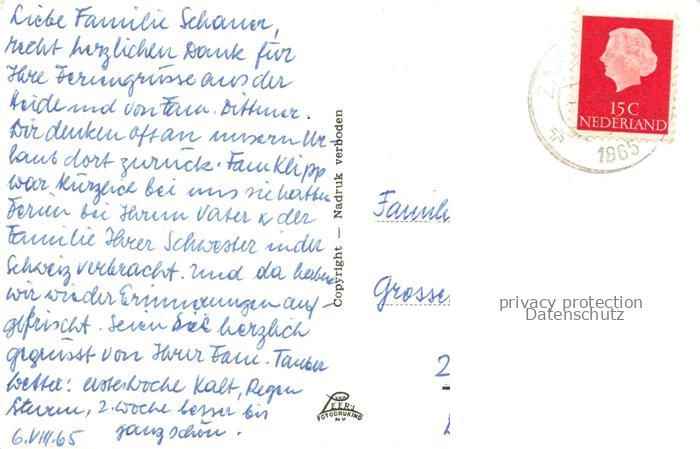 Liebe Familie Schauer,
recht herzlichen Dank für
Ihre Feriengrüsse aus der
Heide und von Fam. Dittmer.
Wir denken oft an unsern Ur-
laub dort zurück. Fam Klipp
war kürzlich bei uns sie hatten
Ferien bei Ihrem Vater & der
Familie Ihrer Schwester in der
Schweiz verbracht. Und da haben
wir wieder Erinnerungen auf-
gefrischt. Seien Sie herzlich
gegrüsst von Ihrer Fam. Tauber
Wetter: erste Woche Kalt, Regen
Sturm, 2. Woche besser bis
ganz schön.
6.VIII.65
Copyright — Nadruk verboden
VAN
LEER'S
FOTODRUKIND
N.V.
15 C
NEDERLAND
1965
Famili
Grosse
2
privacy protection
Datenschutz